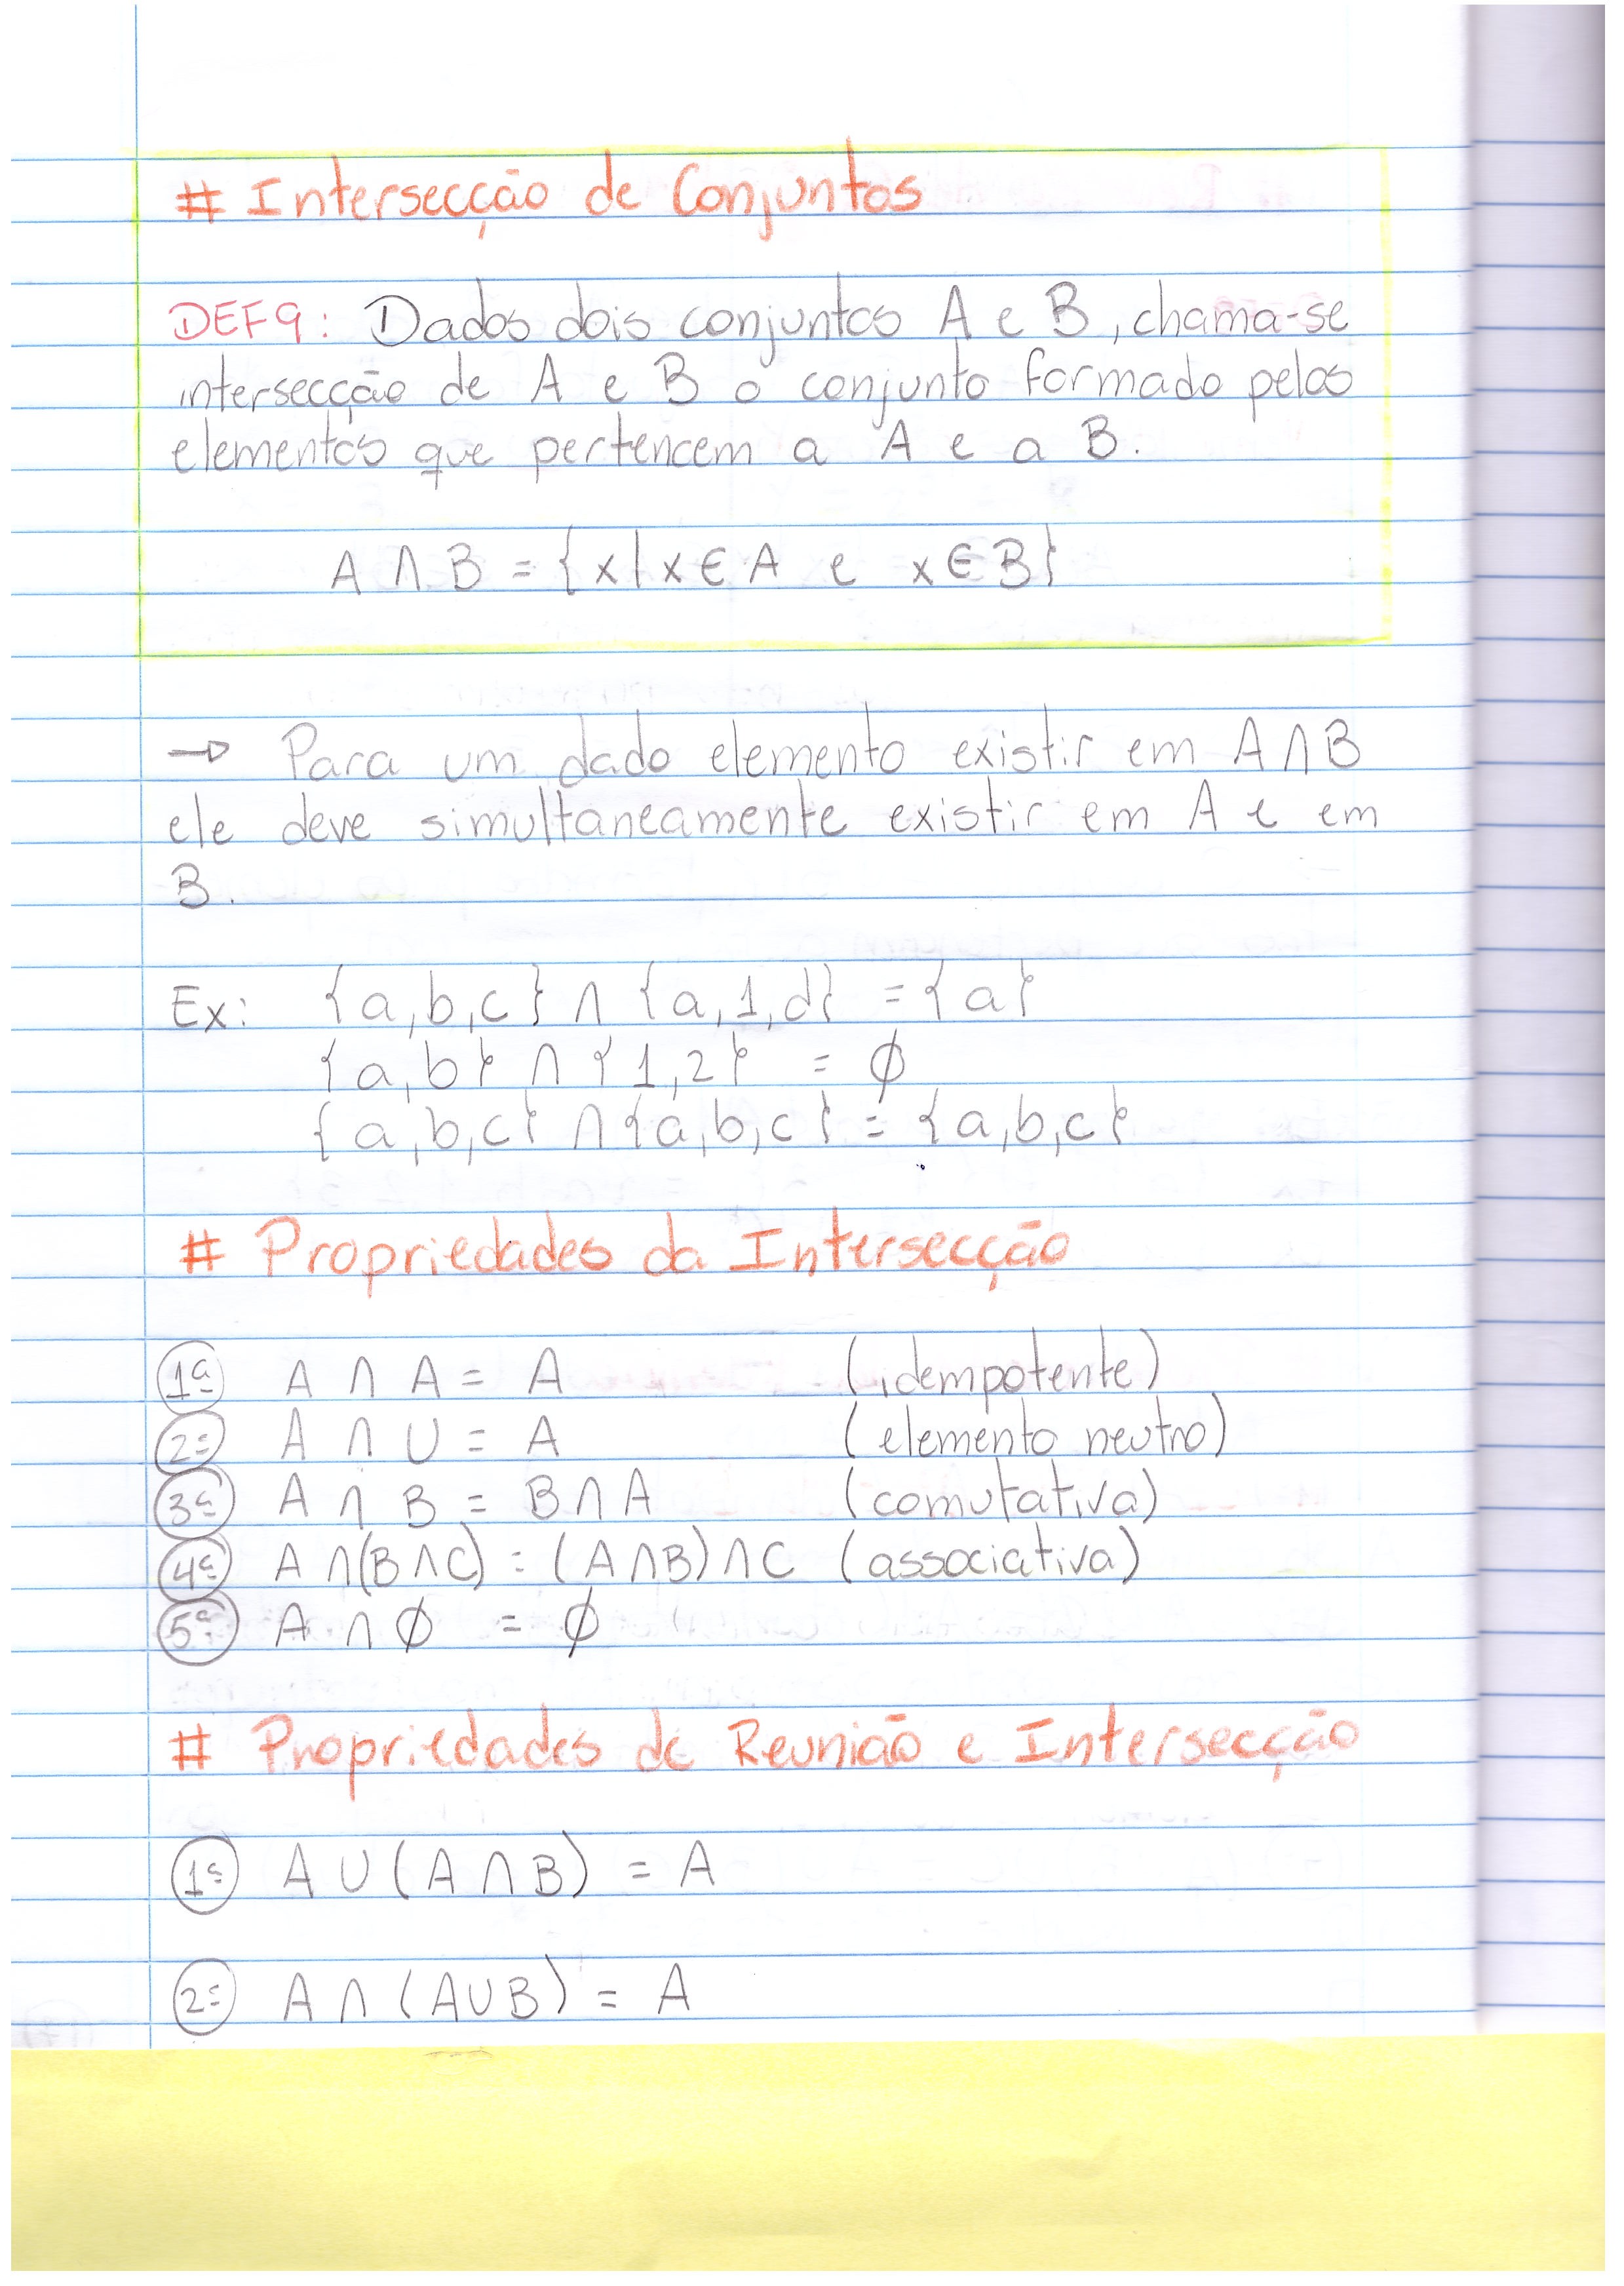 # Intersecção de Conjuntos
DEF9: Dados dois conjuntos A e B, chama-se
intersecção de A e B o conjunto formado pelos
elementos que pertencem a A e a B.
A ∩ B = {x|x∈A e x∈B}
→ Para um dado elemento existir em A∩B
ele deve simultaneamente existir em A e em
B.
Ex: {a,b,c} ∩ {a,1,d} = {a}
{a,b} ∩ {1,2} = ∅
{a,b,c} ∩ {a,b,c} = {a,b,c}
# Propriedades da Intersecção
1ª A ∩ A = A (idempotente)
2ª A ∩ U = A (elemento neutro)
3ª A ∩ B = B ∩ A (comutativa)
4ª A ∩(B∩C) = (A∩B)∩C (associativa)
5ª A ∩ ∅ = ∅
# Propriedades de Reunião e Intersecção
1ª A ∪ (A ∩ B) = A
2ª A ∩ (A∪B) = A